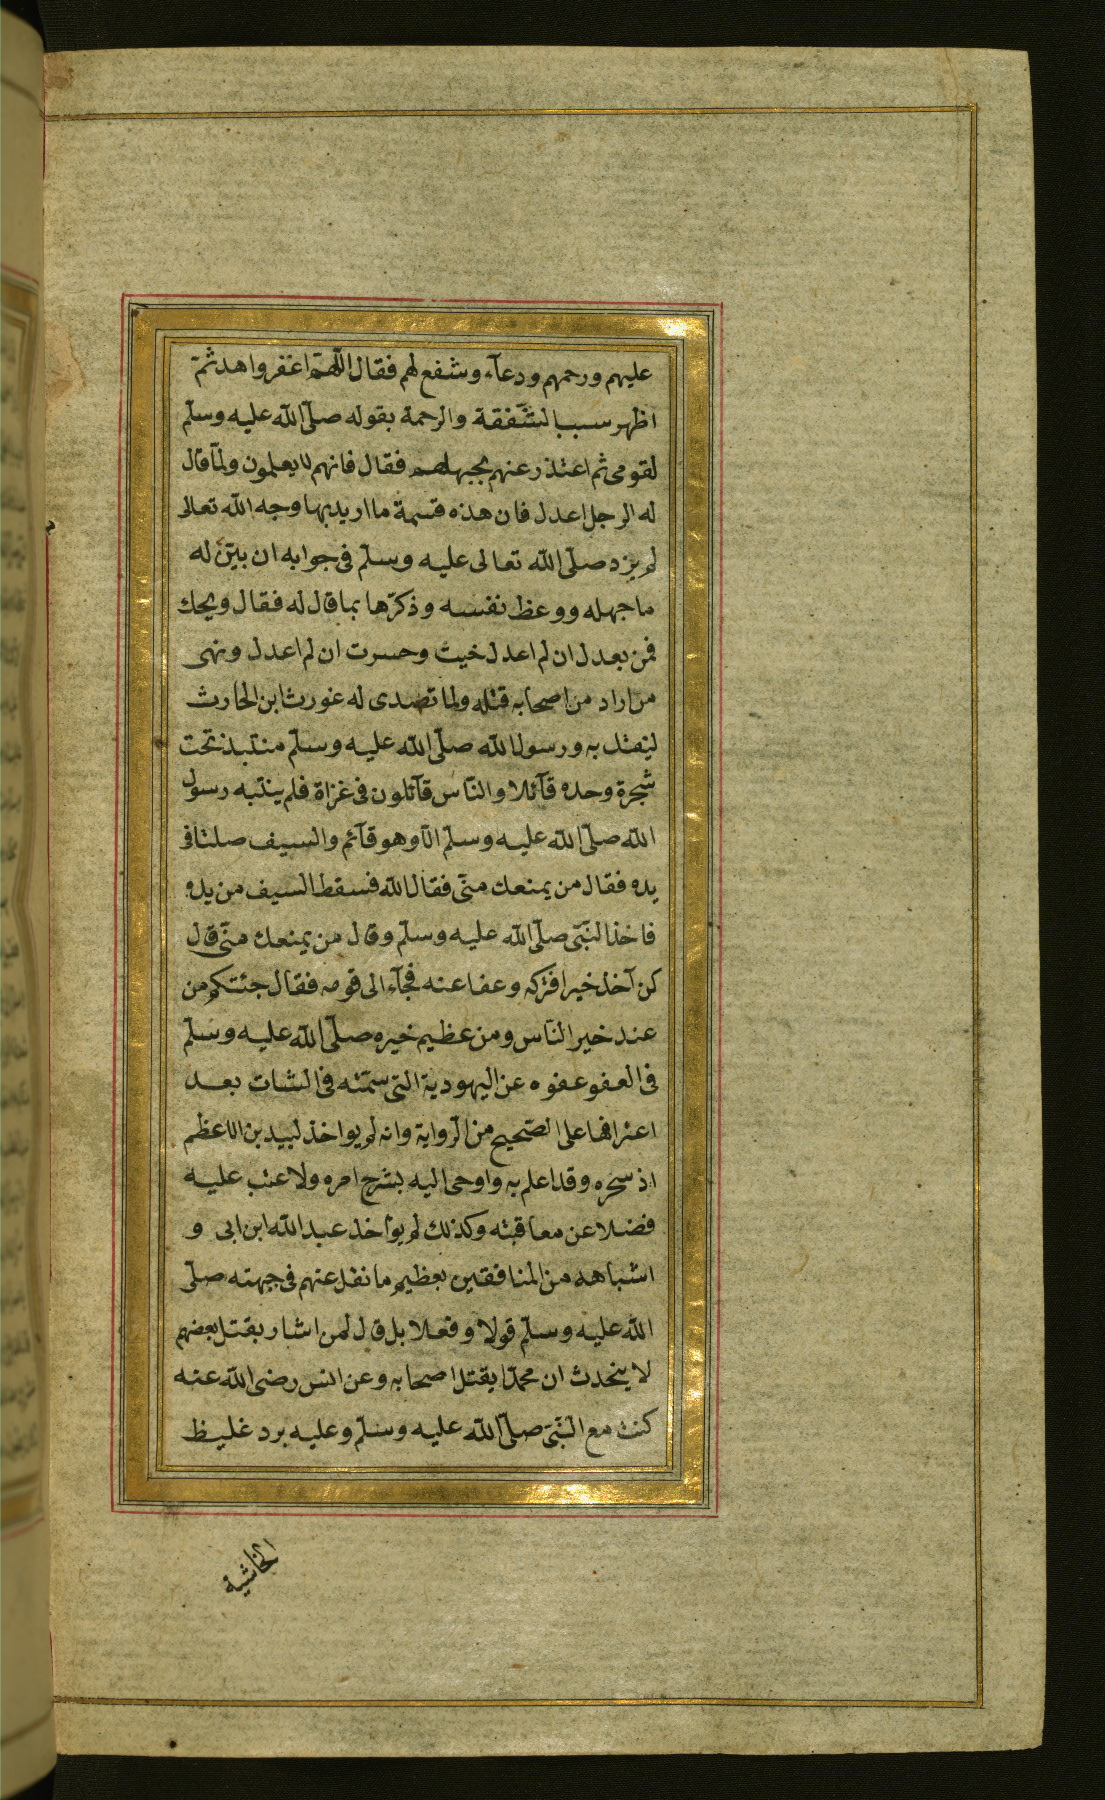 عليهم ورحمهم ودعآء وشفع لهم فقال اللّهمّ اغفر واهد ثمّ
اظهر سببا لشّفقة والرحمة بقوله صلّى الله عليه وسلّم
لقومى ثم اعتذر عنهم بجهلهم فقال فانهم لا يعلمون ولمّا قال
له الرجل اعدل فان هذه قسمة ما اريد بها وجه الله تعالى
لم يزد صلّى الله تعالى عليه وسلّم فى جوابه ان بيّن له
ما جهله ووعظ نفسه وذكّرها بما قال له فقال ويحك
فمن يعدل ان لم اعدل خبث وحسرت ان لم اعدل ونهى
من اراد من اصحابه قتله ولما تصدى له غورث ابن الحارث
ليفتك به ورسول الله صلّى الله عليه وسلّم منتبذ تحت
شجرة وحده قآئلا والنّاس قآئلون فى غزاة فلم ينتبه رسول
الله صلّى الله عليه وسلّم الّا وهو قآئم والسيف صلتا فى
يده فقال من يمنعك منّى فقال الله فسقط السيف من يده
فاخذ النّبىّ صلّى الله عليه وسلّم وقال من يمنعك منّى قال
كن آخذ خير افتركه وعفا عنه فجآء الى قومه فقال جئتكم من
عند خير النّاس ومن عظيم خيره صلّى الله عليه وسلّم
فى العفو عفوه عن اليهودية التى سمّته فى الشات بعد
اعترافها على الصّحيح من الرواية وانه لم يواخذ لبيد بن الاعظم
اذ سحره وقد اعلم به واوحى اليه بشرح امره ولا عتب عليه
فضلا عن معاقبته وكذلك لم يؤاخذ عبد الله ابن ابى و
اشباهه من المنافقين بعظيم ما نقل عنهم فى جهته صلّى
الله عليه وسلّم قولا وفعلا بل قال لمن اشار بقتل بعضهم
لا يتحدث ان محمدّا يقتل اصحابه وعن انس رضى الله عنه
كنت مع النّبىّ صلّى الله عليه وسلّم وعليه برد غليظ
الحاشية